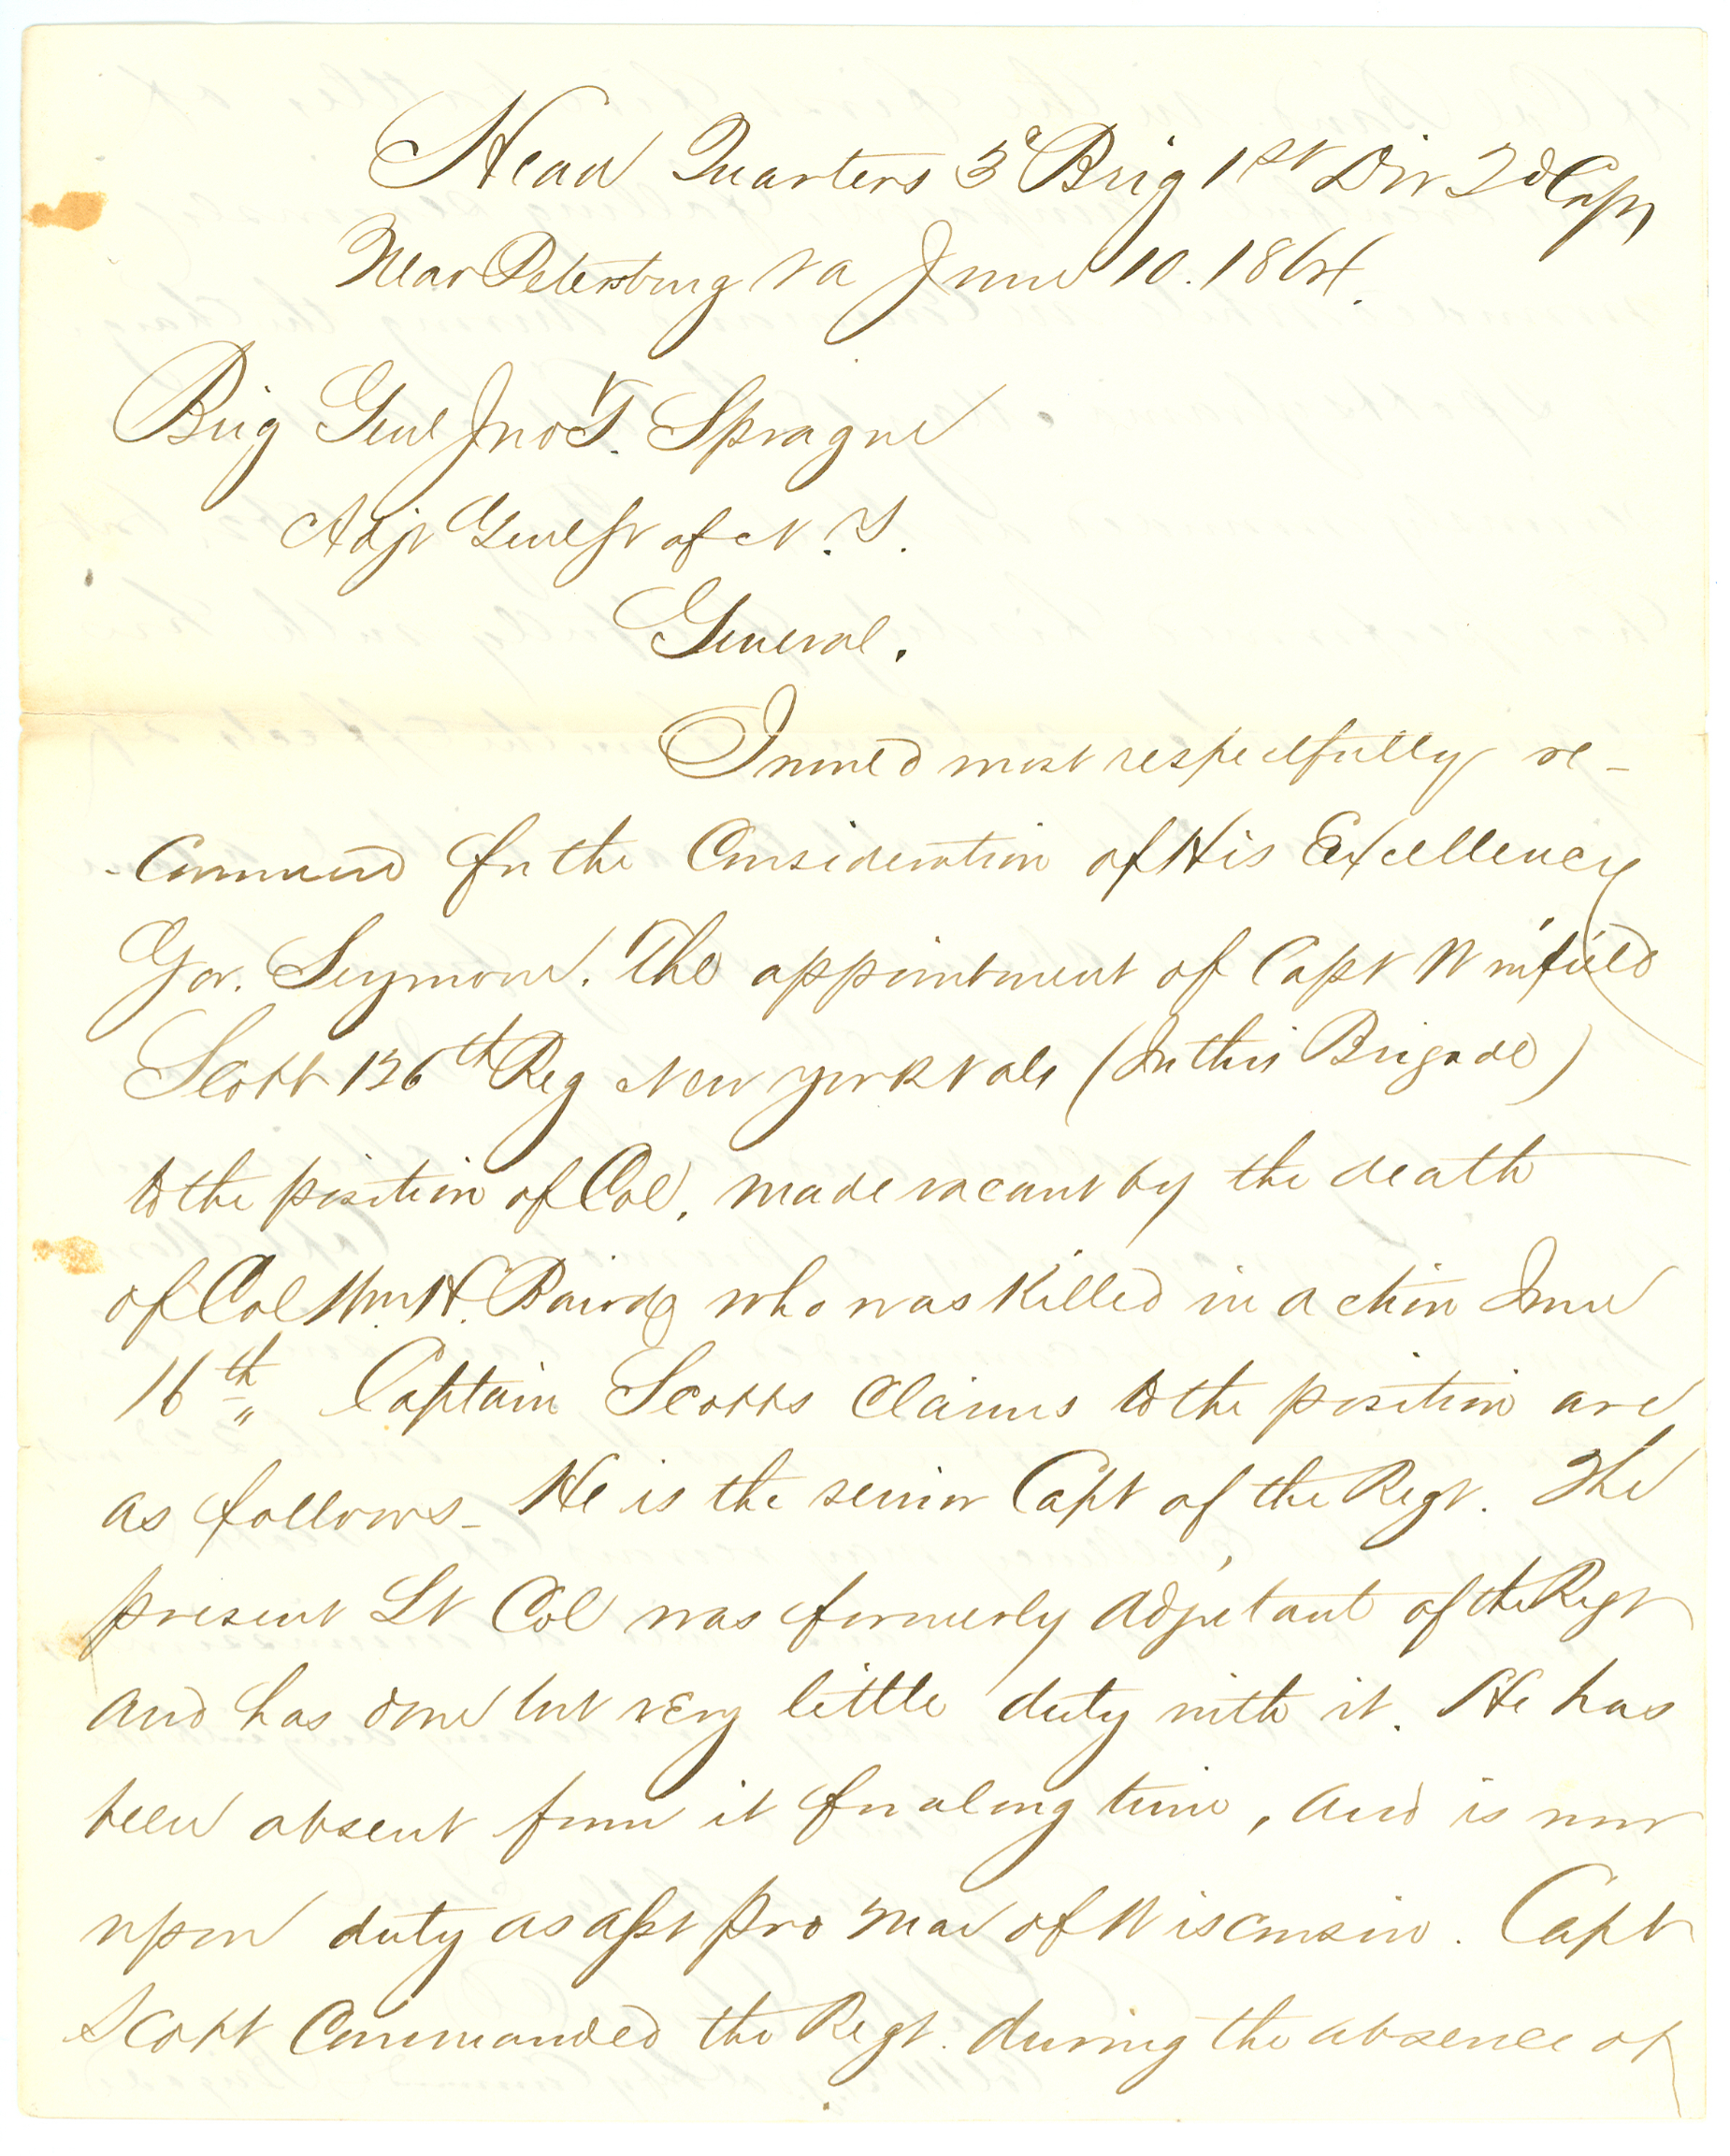 Head Quarters 3d Brig 1st Div 2d Corps
Near Petersburg Va June 10. 1864.
Brig Genl Jno T. Sprague
Adjt Genl St of N.Y.
General.
I would most respectfully re-
-commend for the Consideration of His Excellency
Gov. Seymour. The appointment of Capt Winfield
Scott 126th Reg New York Vols (In this Brigade)
to the position of Col. made vacant by the death
of Col Wm. H. Baird who was killed in action June
16th Captain Scotts claims to the position are
as follows - He is the senior Capt of the Regt. The
present Lt Col was formerly Adjutant of the Regt
and has done but very little duty with it. He has
been absent from it for a long time, and is now
upon duty as asst Pro Mar of Wisconsin. Capt
Scott Commanded the Regt. during the absence of